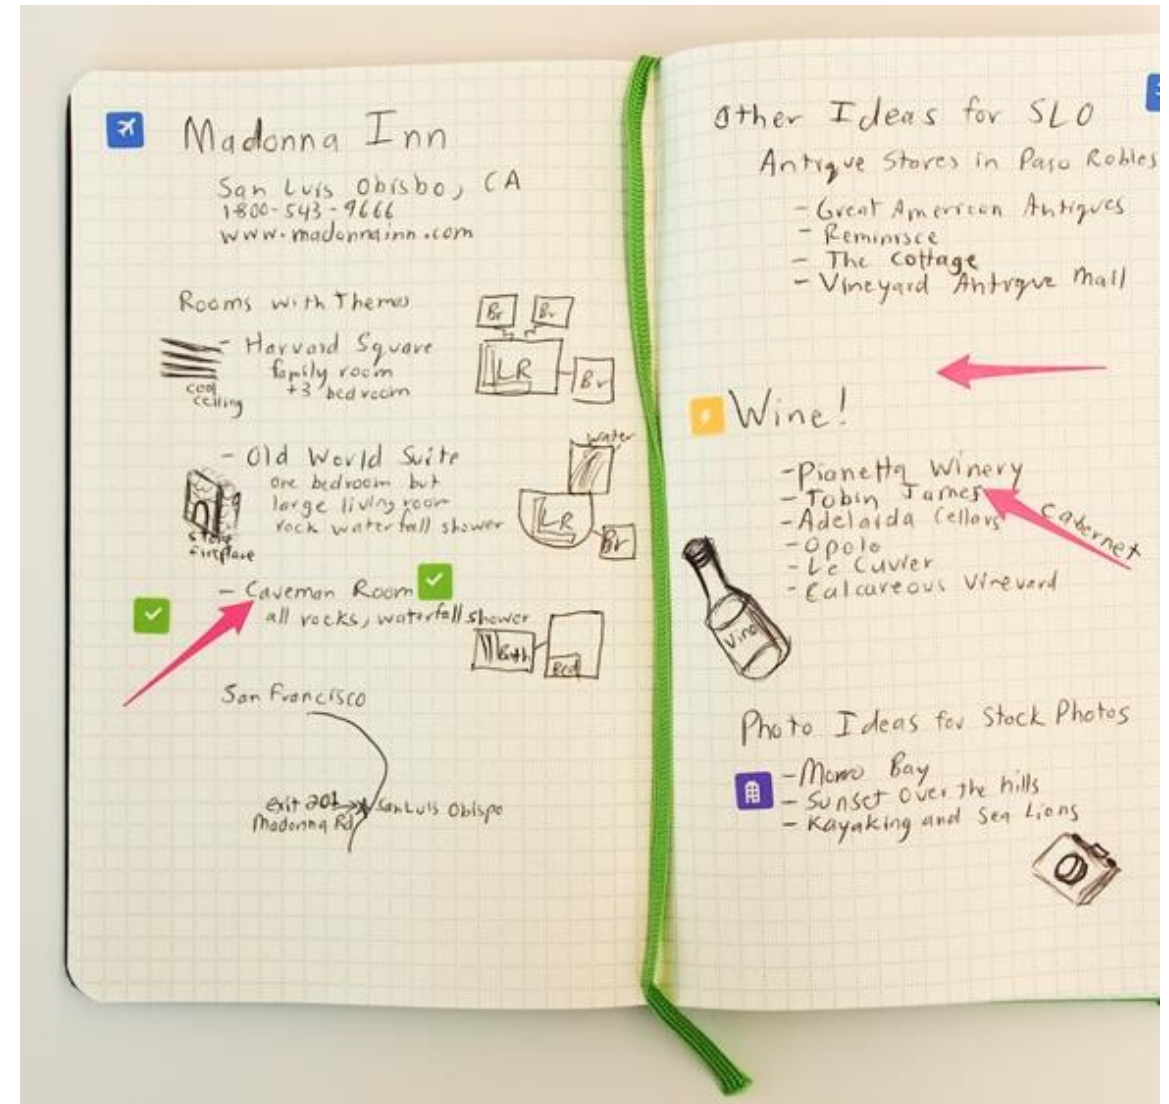 Madonna Inn
San Luis Obisbo, CA
1-800-543-9666
www.madonnainn.com
Rooms with Themes
- Harvard Square
family room
+3 bedroom
cool
ceiling
Br
Br
LR
Br
- Old World Suite
one bedroom but
large living room
rock waterfall shower
stone
fireplace
water
LR
Br
- Caveman Room
all rocks, waterfall shower
Bath
Bed
San Francisco
exit 201
Madonna Rd
San Luis Obispo
Other Ideas for SLO
Antique Stores in Paso Robles
- Great American Antiques
- Reminisce
- The Cottage
- Vineyard Antique Mall
Wine!
- Pianetta Winery
- Tobin James
- Adelaida Cellars
- Opolo
- Le Cuvier
- Calcareous Vineyard
Cabernet
Vino
Photo Ideas for Stock Photos
- Morro Bay
- Sunset Over the hills
- Kayaking and Sea Lions